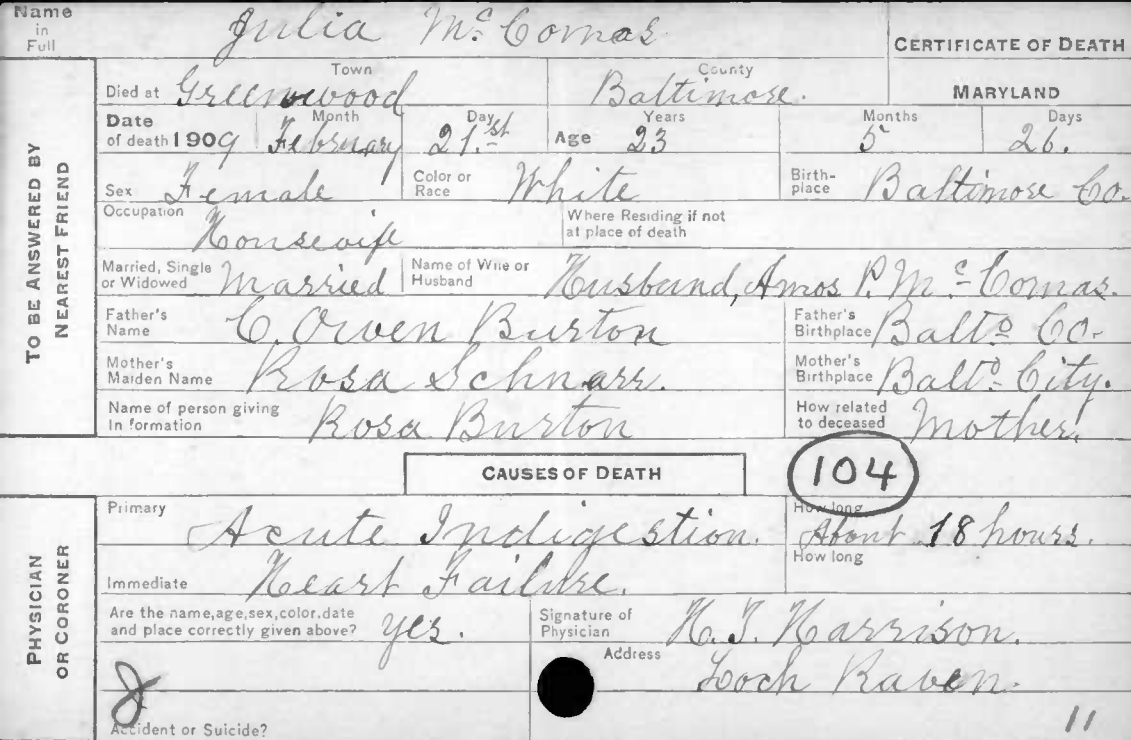 Name in Full Julia Mc Comas CERTIFICATE OF DEATH
TO BE ANSWERED BY NEAREST FRIEND
Died at Town Greenwood County Baltimore. MARYLAND
Date of death 1909 Month February Day 21.st Age Years 23 Months 5 Days 26.
Sex Female Color or Race White Birth-place Baltimore Co.
Occupation Housewife Where Residing if not at place of death
Married, Single or Widowed Married Name of Wife or Husband Husband, Amos P. Mc Comas.
Father's Name C. Owen Burton Father's Birthplace Balto Co.
Mother's Maiden Name Rosa Schnarr. Mother's Birthplace Balto. City.
Name of person giving In formation Rosa Burton How related to deceased Mother.
CAUSES OF DEATH 104
PHYSICIAN OR CORONER
Primary Acute Indigestion. How long About 18 hours.
Immediate Heart Failure. How long
Are the name,age,sex,color.date and place correctly given above? yes. Signature of Physician H. T. Harrison.
Address Loch Raven.
Accident or Suicide? 11